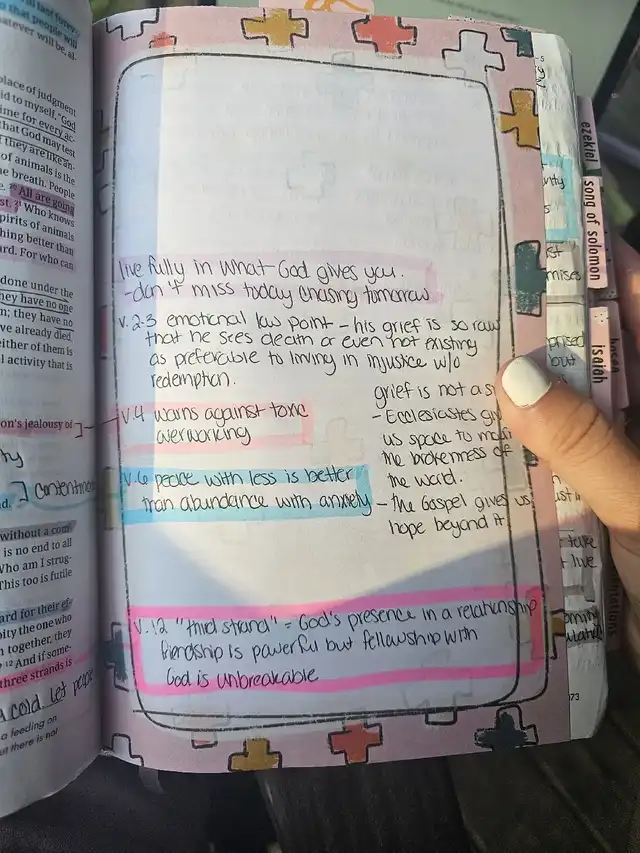 in last forev
so that people will
atever will be, al
place of judgment
id to myself, "God
time for every ac-
that God may test
f they are like an-
of animals is the
me breath. People
e. 20 All are going
st. 21 Who knows
spirits of animals
hing better than
ard. For who can
done under the
they have no one
n; they have no
ve already died,
either of them is
l activity that is
on's jealousy of
ty
d. ] contentment
without a com-
is no end to all
Who am I strug-
This too is futile
ard for their ef-
pity the one who
n together, they
12 And if some-
three strands is
A cord let people
a feeding on
ut there is not
live fully in what God gives you.
- don't miss today chasing tomorrow
v. 2-3 emotional low point - his grief is so raw
that he sees death or even not existing
as preferable to living in injustice w/o
redemption.
v.4 warns against toxic
overworking
v.6 peace with less is better
than abundance with anxiety
grief is not a s
- Ecclesiastes giv
us space to mo
the brokenness of
the world.
- the Gospel gives us
hope beyond it
v.12 "third strand" = God's presence in a relationship
friendship is powerful but fellowship with
God is unbreakable
ezekiel
song of solomon
isaiah
mises
prised
but
live
73